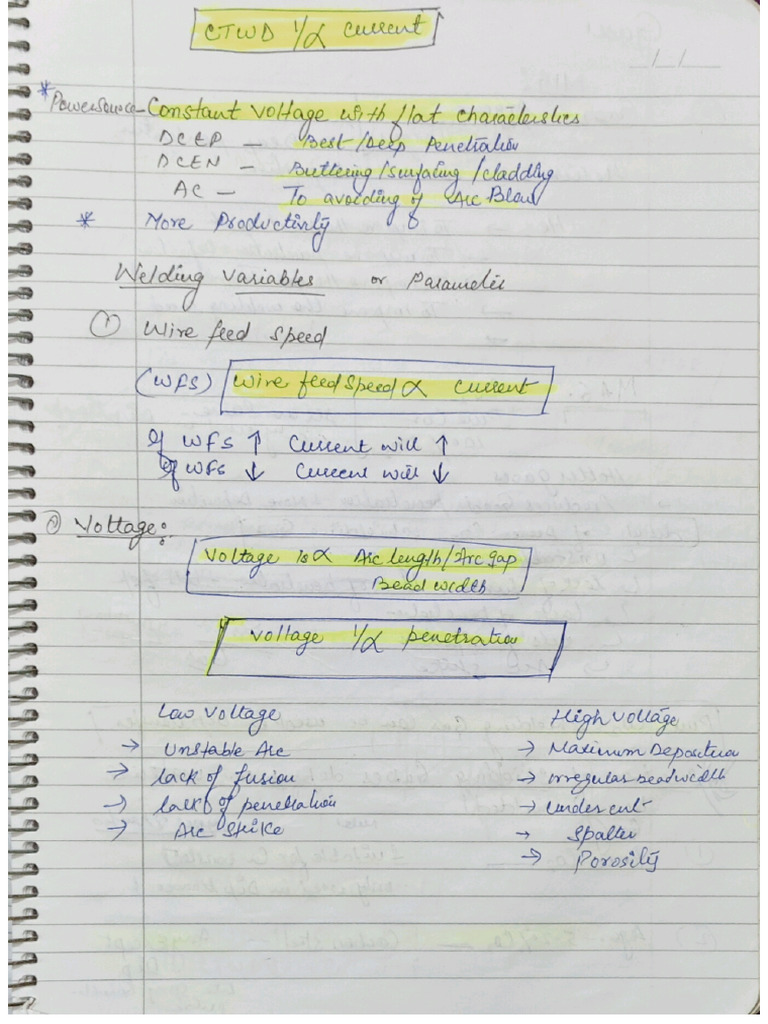 CTWD 1/∝ current
* Powersource - Constant voltage with flat characteristics
DCEP - Best/Deep Penetration
DCEN - Buttering/surfacing/cladding
AC - To avoiding of Arc Blow
* More Productivity
Welding variables or Parameter
① Wire feed speed
(WFS) Wire feed speed ∝ current
If WFS ↑ Current will ↑
If WFS ↓ Current will ↓
② Voltage:
Voltage is ∝ Arc length/Arc gap
Bead width
voltage 1/∝ penetration
Low voltage
→ Unstable Arc
→ lack of fusion
→ lack of penetration
→ Arc strike
High voltage
→ Maximum Deposition
→ irregular beadwidth
→ under cut
→ Spatter
→ Porosity